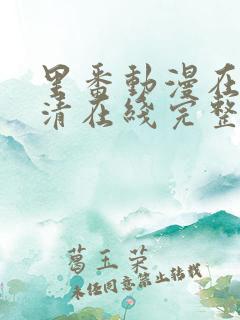 里番動漫在
清在綫完整
葛玉荣
未经同意禁止转载